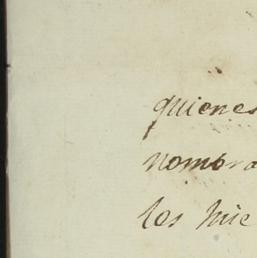 quienes
nombra
los hue